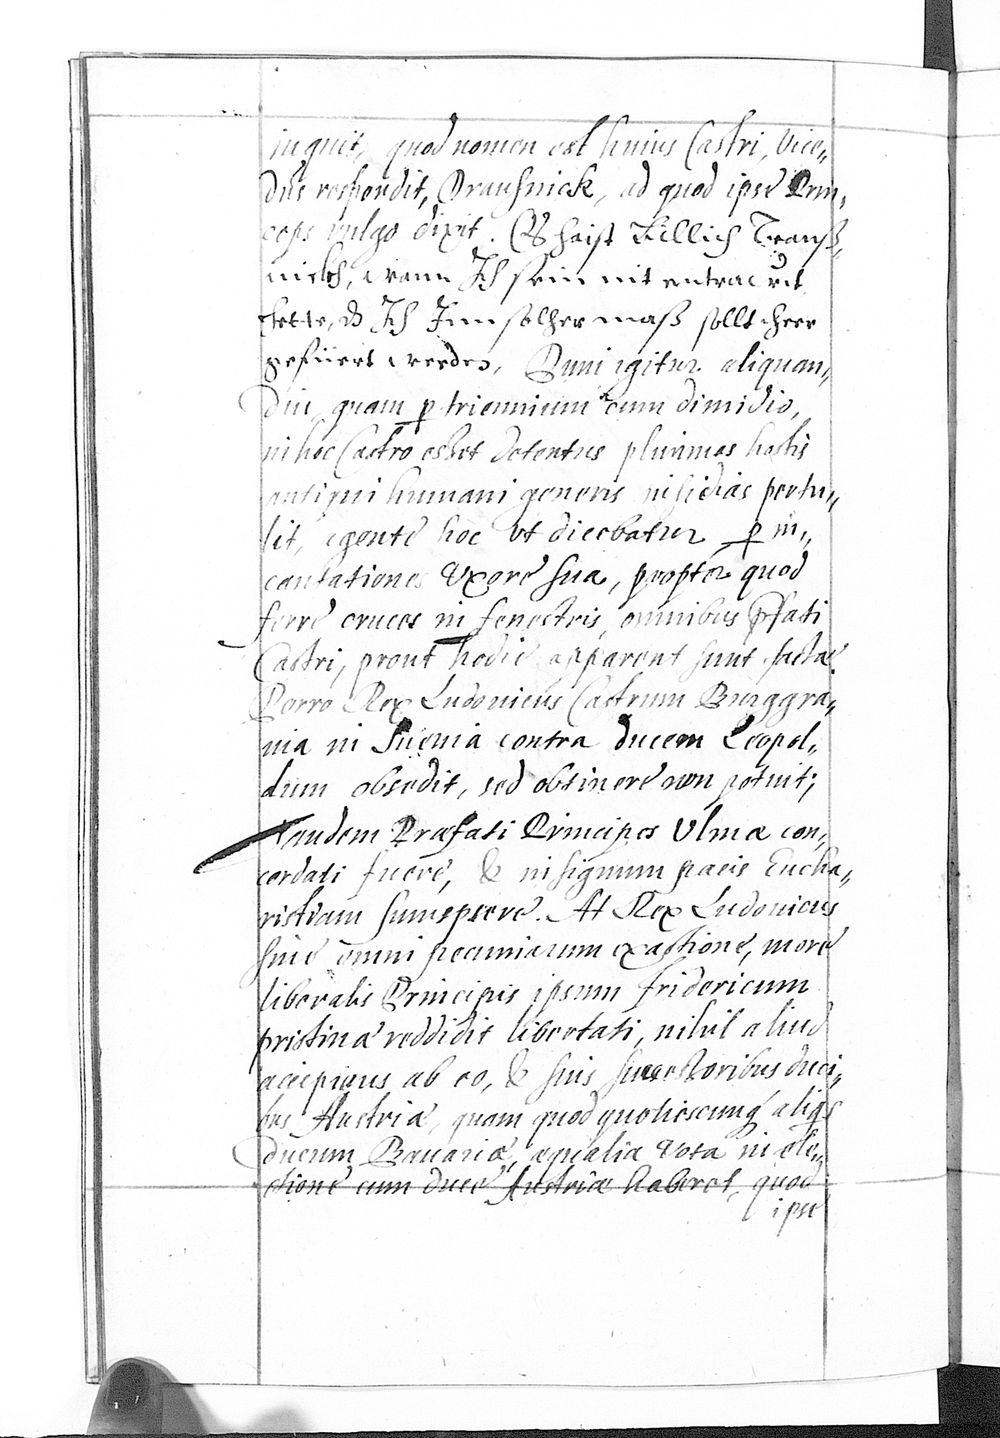 inquit, quod nomen est huius Castri, Vice„
dns respondit, Drausnick, ad quod ipse Prin„
ceps vulgo dixit. Es haist billich Trauß„
nickh, wann Ich sein nit
hette, dz Ich Inn solher maß sollt heer
gefüert werden, Dum igitur aliquan„
diu, quam p triennium cum dimidio,
in hoc Castro esset detentus plurimas hostis
antiqui humani generis insidias pertu„
lit, agente hoc vt dicebatur p in„
cantationes Vxore sua, propter quod
ferre cruces in fenestris, omnibus pfati
Castri, prout hodie apparent sunt factæ.
Porro Rex Ludouicus Castrum Burggra„
uia in Sueuia contra ducem Leopol„
dum obsedit, sed obtinere non potuit;
Tandem Præfati Principes Vlmæ con„
cordati fuere, & in signum pacis Eucha„
ristiam sumpsere. At Rex Ludouicus
sine omni pecuniarum exactione, more
liberalis Principis ipsum fridericum
pristinæ reddidit libertati, nihil aliud
accipiens ab eo, & suis successoribus duci„
bus Austriæ, quam quod quotiescunq aliqs
ducum Bauariæ, æqualia Vota in ele„
ctione cum duce Austriæ haberet, quod
ipse